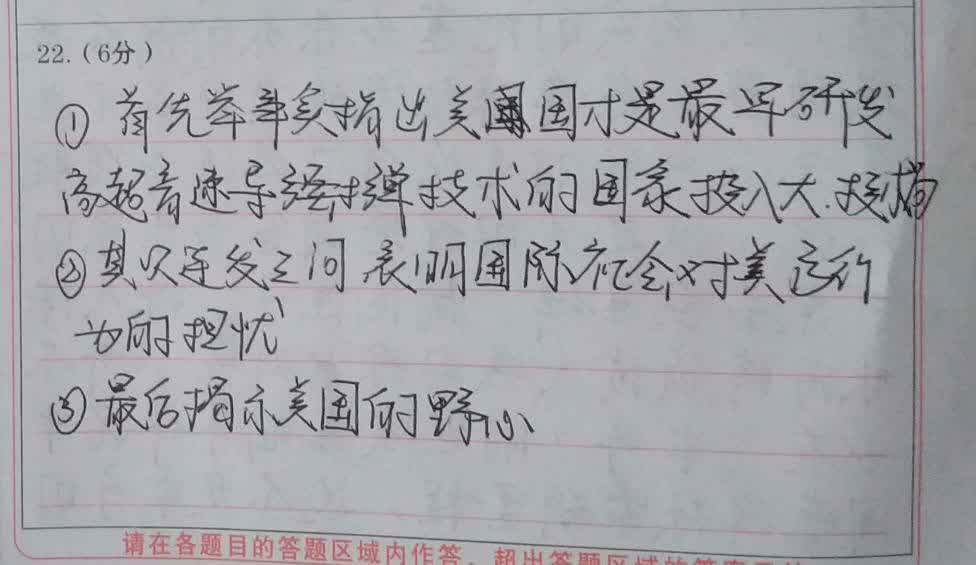 22.(6分)
① 首先举事实指出美国国才是最早研发
高超音速导弹技术的国家投入大.
②其次连发三问 表明国际社会对美这行
为的担忧
③最后揭示美国的野心
请在各题目的答题区域内作答，超出答题区域的答案无效